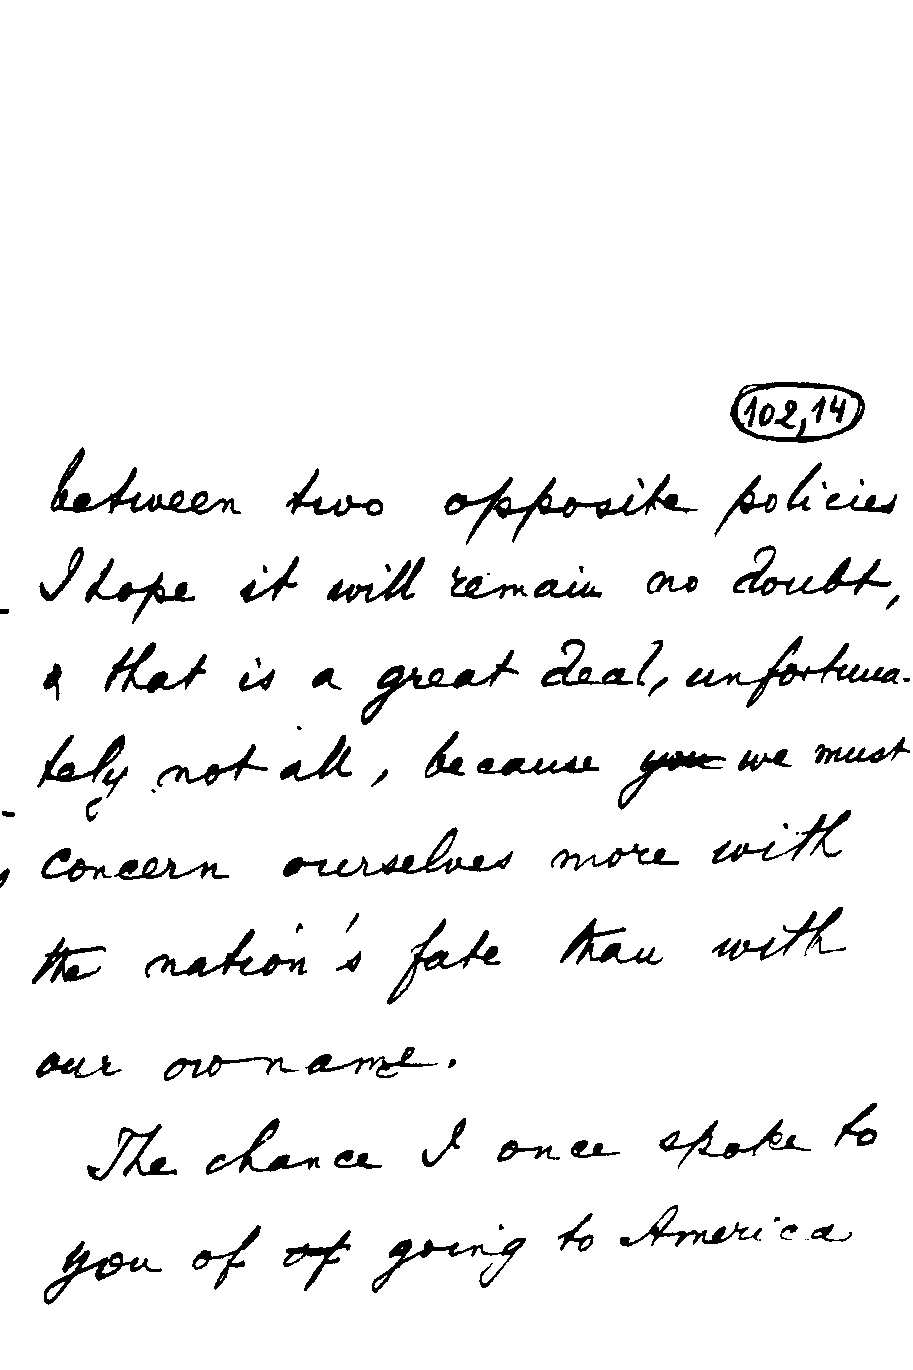 102,14
between two opposite policies
I hope it will remain no doubt,
& that is a great deal, unfortuna-
tely not all, because you we must
concern ourselves more with
the nation's fate than with
our own name.
The chance I once spoke to
you of of going to America